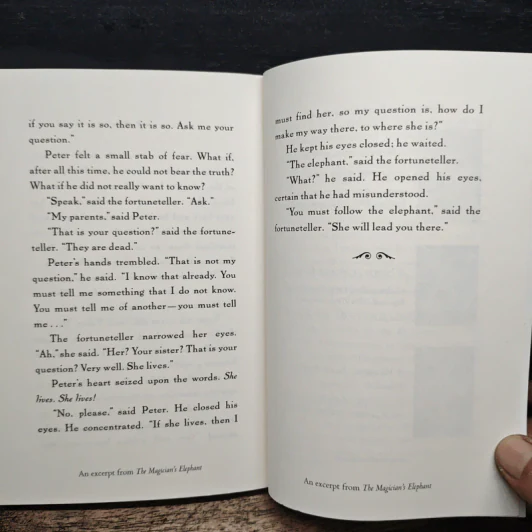 if you say it is so, then it is so. Ask me your
question."
Peter felt a small stab of fear. What if,
after all this time, he could not bear the truth?
What if he did not really want to know?
"Speak," said the fortuneteller. "Ask."
"My parents," said Peter.
"That is your question?" said the fortune-
teller. "They are dead."
Peter's hands trembled. "That is not my
question," he said. "I know that already. You
must tell me something that I do not know.
You must tell me of another—you must tell
me . . ."
The fortuneteller narrowed her eyes.
"Ah," she said. "Her? Your sister? That is your
question? Very well. She lives."
Peter's heart seized upon the words. She
lives. She lives!
"No, please," said Peter. He closed his
eyes. He concentrated. "If she lives, then I
An excerpt from The Magician's Elephant
must find her, so my question is, how do I
make my way there, to where she is?"
He kept his eyes closed; he waited.
"The elephant," said the fortuneteller.
"What?" he said. He opened his eyes,
certain that he had misunderstood.
"You must follow the elephant," said the
fortuneteller. "She will lead you there."
An excerpt from The Magician's Elephant